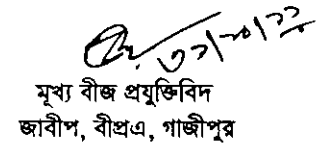 মূখ্য বীজ প্রযুক্তিবিদ
জাবীপ, বীপ্রএ, গাজীপুর